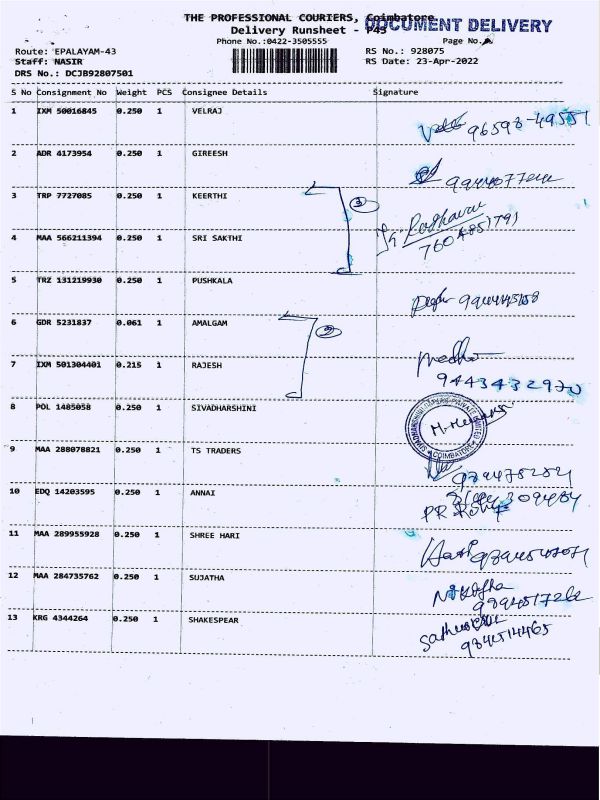 THE PROFESSIONAL COURIERS, Coimbatore
DOCUMENT DELIVERY
Delivery Runsheet - P43
Phone No.:0422-3505555 Page No.
Route: EPALAYAM-43 RS No.: 928075
Staff: NASIR RS Date: 23-Apr-2022
DRS No.: DCJB92807501
S No Consignment No Weight PCS Consignee Details Signature
1 IXM 50016845 0.250 1 VELRAJ
96598-49551
2 ADR 4173954 0.250 1 GIREESH
3 TRP 7727085 0.250 1 KEERTHI
1
4 MAA 566211394 0.250 1 SRI SAKTHI
5 TRZ 131219930 0.250 1 PUSHKALA
6 GDR 5231837 0.061 1 AMALGAM
2
7 IXM 501304401 0.215 1 RAJESH
9443432970
8 POL 1485058 0.250 1 SIVADHARSHINI
COIMBATORE
9 MAA 288078821 0.250 1 TS TRADERS
10 EDQ 14203595 0.250 1 ANNAI
11 MAA 289955928 0.250 1 SHREE HARI
12 MAA 284735762 0.250 1 SUJATHA
13 KRG 4344264 0.250 1 SHAKESPEAR